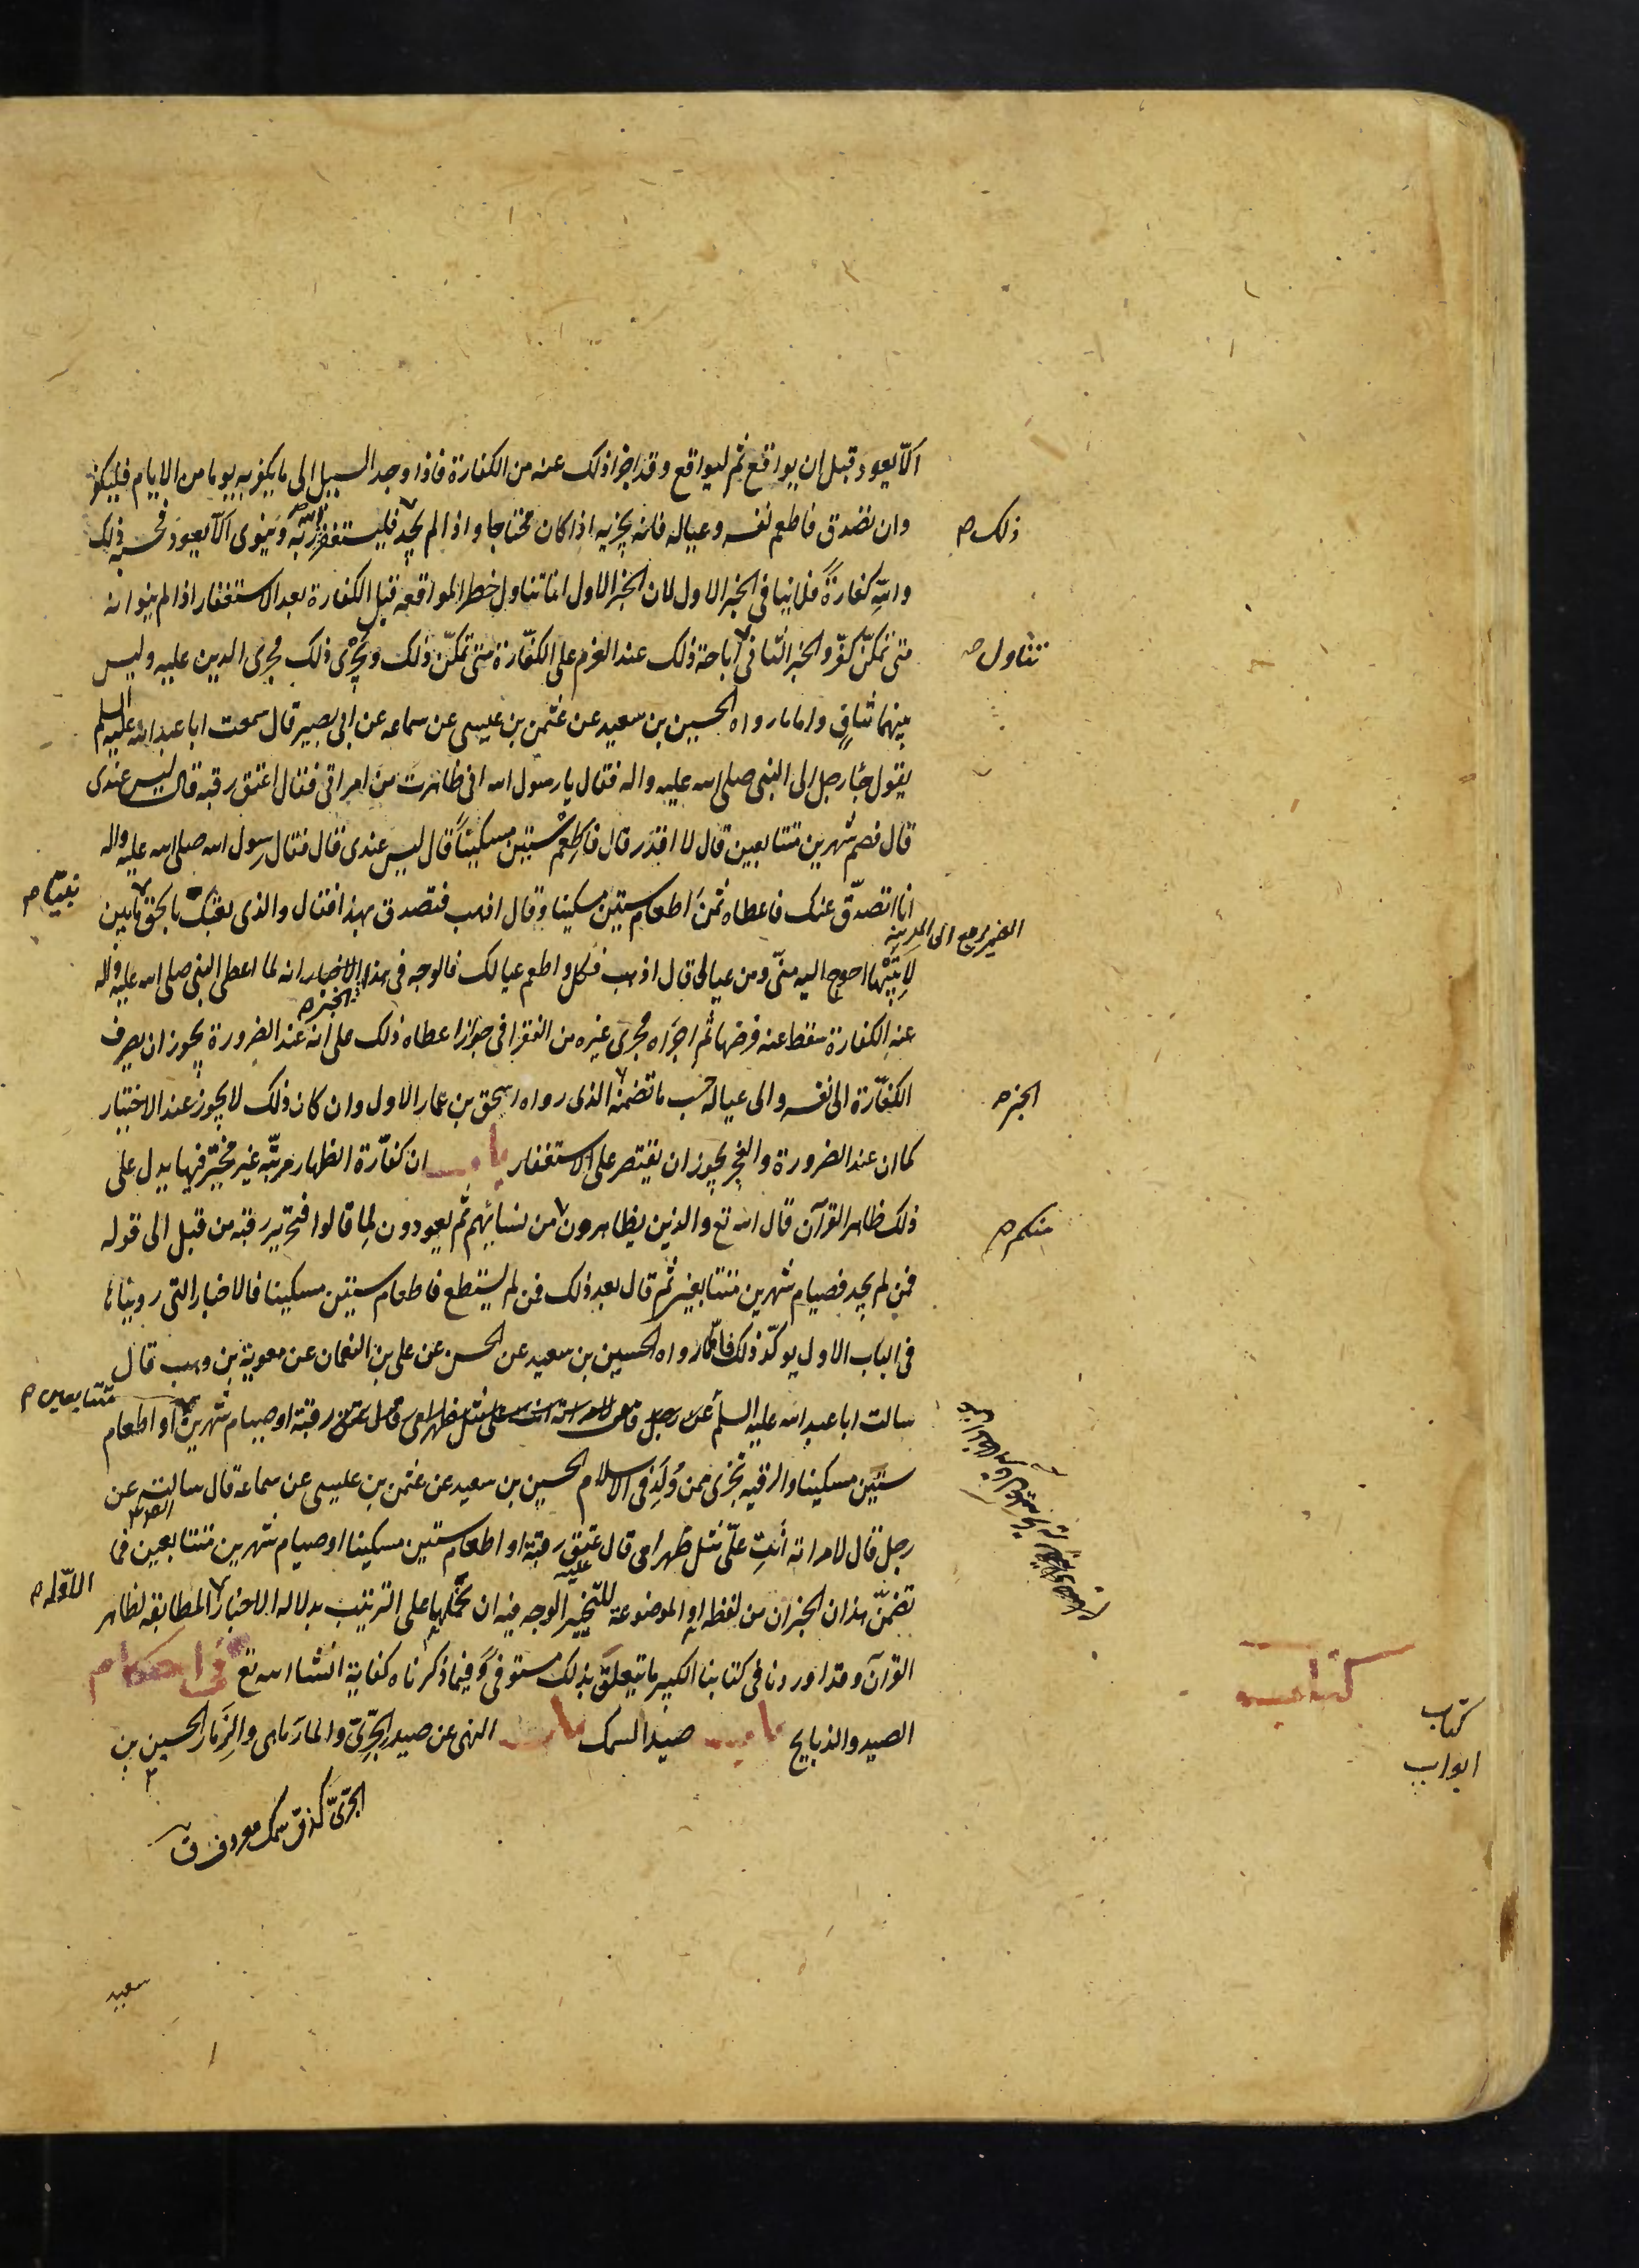 الّا يعود قبل ان يواقع ثم ليواقع وقد اجزا ذلك عنه من الكفارة فاذا وجد السبيل الى ما يكفر به يوما من الايام فليكفر
وان تصدق فاطعم نفسه وعياله فانه يجزيه اذا كان محتاجا واذا لم يجد فليستغفر الله ربّه وينوى الّا يعود فحسبه ذلك
ذلك ص
والله كفارةً فلا ينافى الخبر الاول لان الخبر الاول انما تناول حظر المواقعه قبل الكفارة بعد الاستغفار اذا لم ينو انه
متى تمكّن كفّر والخبر الثانى اباحة ذلك عند العزم على الكفّارة متى تمكّن ذلك ويجرى ذلك مجرى الدين عليه وليس
تتناول ص
بينهما تنافٍ واما ما رواه الحسين بن سعيد عن عثمن بن عيسى عن سماعه عن ابى بصير قال سمعت ابا عبد الله عليه السلم
يقول جاء رجل الى النبى صلى الله عليه واله فقال يا رسول الله انى ظاهرت من امراتى فقال اعتق رقبة قال ليس عندى
قال فصم شهرين متتابعين قال لا اقدر قال فاطعم ستين مسكيناً قال ليس عندى قال فقال رسول الله صلى الله عليه واله
انا اتصدّق عنك فاعطاه ثمن اطعام ستين مسكينا وقال اذهب فتصدق بهذا فقال والذى بعثك بالحق ما بين
نبيّا ص
الضمير يرجع الى المدينه
لابتيها احوج اليه منّى ومن عيالى قال اذهب فكل واطعم عيالك فالوجه فى هذا الاخبار انه لما اعطى النبى صلى الله عليه واله
الخبر ص
عنه الكفارة سقط عنه فرضها ثم اجراه مجرى غيره من الفقرا فى جواز اعطاه ذلك على انه عند الضرورة يجوز ان يصرف
الكفّارة الى نفسه والى عياله حسب ما تضمنه الذى رواه اسحق بن عمار الاول وان كان ذلك لا يجوز عند الاختيار
الخبر ص
كما ان عند الضرورة والعجز يجوز ان يقتصر على الاستغفار باب ان كفّارة الظهار مرتّبه غير مخيّر فيها يدل على
ذلك ظاهر القرآن قال الله تع والذين يظاهرون من نسائهم ثم يعودون لما قالوا فتحرير رقبة من قبل الى قوله
منكم ص
فمن لم يجد فصيام شهرين متتابعين ثم قال بعد ذلك فمن لم يستطع فاطعام ستين مسكينا فالاخبار التى رويناها
فى الباب الاول يوكّد ذلك فامّا ما رواه الحسين بن سعيد عن الحسن عن على بن النعمان عن معوية بن وهب قال
سالت ابا عبد الله عليه السلم عن رجل قال لامراته انت على مثل ظهر امى قال عتق رقبة او صيام شهرين او اطعام
متتابعين ص
ستين مسكينا والرقبه تجزى ممن وُلِدَ فى الاسلام الحسين بن سعيد عن عثمن بن عيسى عن سماعة قال سالته عن
رجل قال لامراته انتِ علىّ مثل ظهر امى قال عتق رقبة او اطعام ستين مسكينا او صيام شهرين متتابعين فما
تضمّن هذان الخبران من لفظه او الموضوعة للتخيير الوجه فيه ان نحملها على الترتيب بدلاله الاخبار المطابقه لظاهر
الاوّله ص
القرآن وقد اوردنا فى كتابنا الكبير ما يتعلق بذلك مستوفىً وفيما ذكرناه كفاية انشاء الله تع فى احكام
كتاب
كتاب
ابواب
الصيد والذبايح باب صيد السمك باب النهى عن صيد الجرّىّ والمارماهى والزمار الحسين بن
الجرّىّ كذمّى سمك معروف ق
سعيد